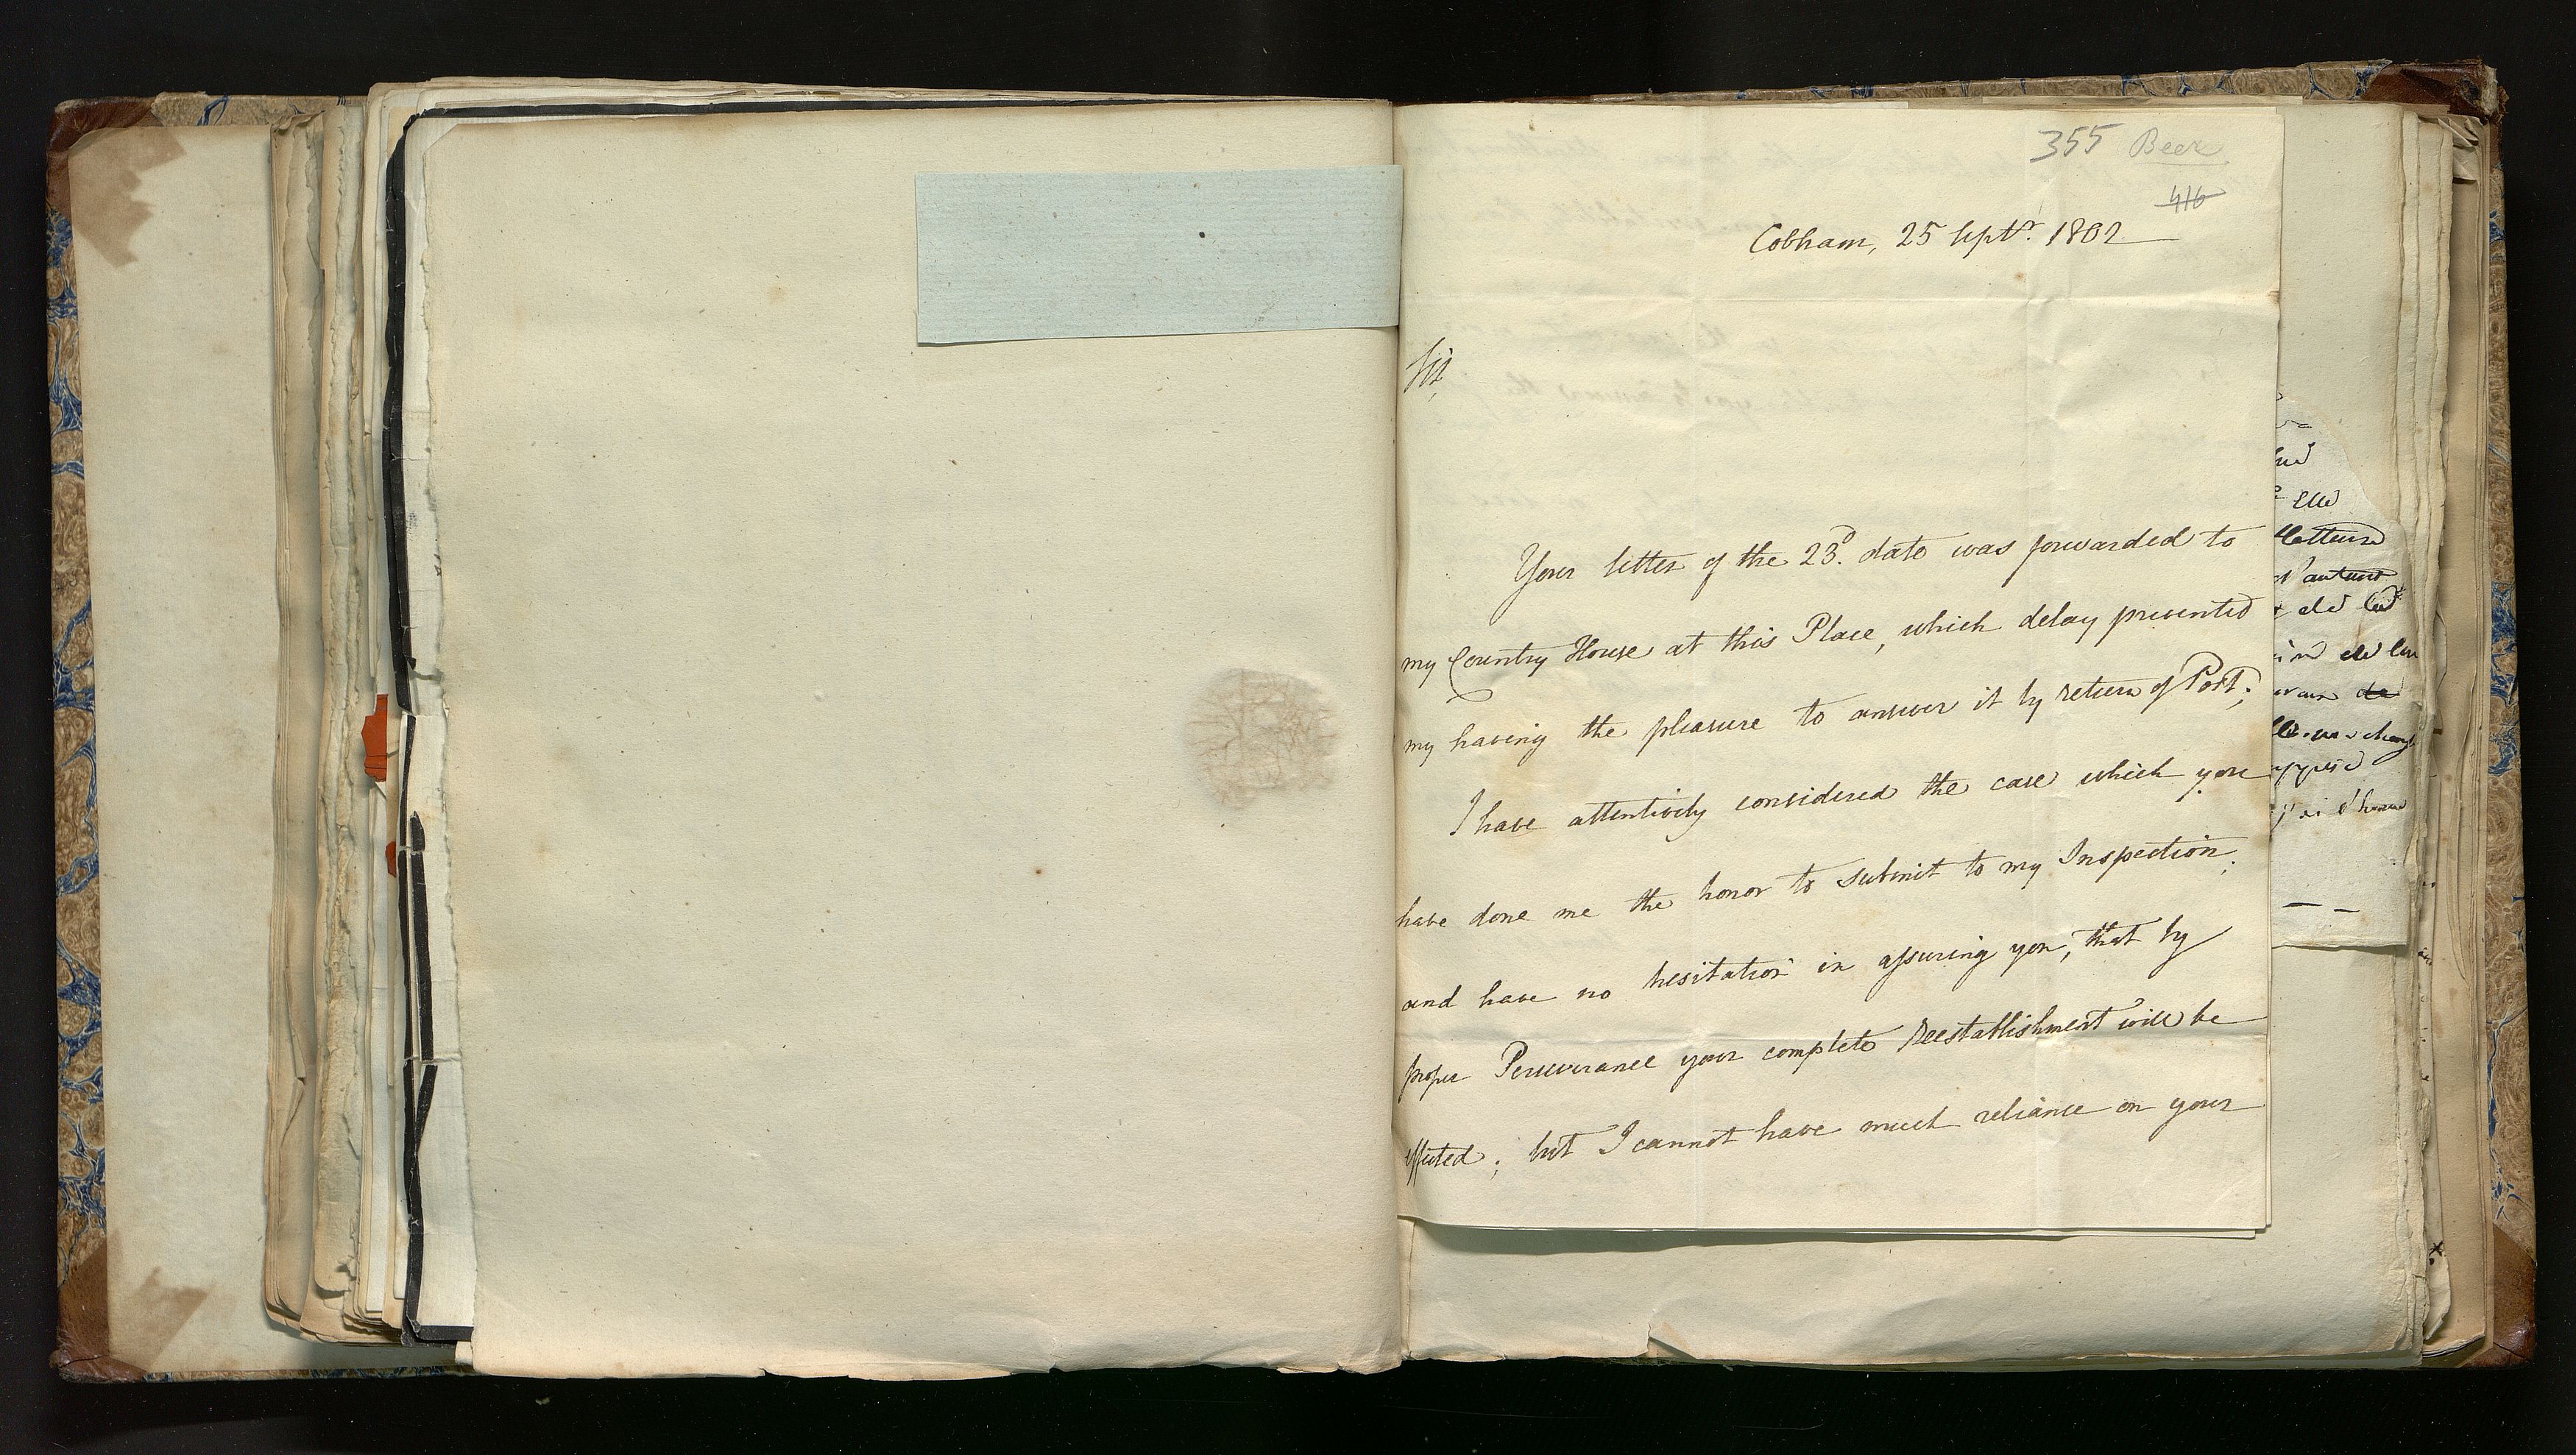 355 Beer
416
Cobham, 25 Septr. 1802
Sir,
Your letter of the 23d. date was forwarded to
my Country House at this Place, which delay prevented
my having the pleasure to answer it by return of Post;
I have attentively considered the case which you
have done me the honor to submit to my Inspection;
and have no hesitation in assuring you, that by
proper Perseverance your complete Reestablishment will be
effected; but I cannot have much reliance on your
Elle
l'autre
de la
de
j'ai l'honneur